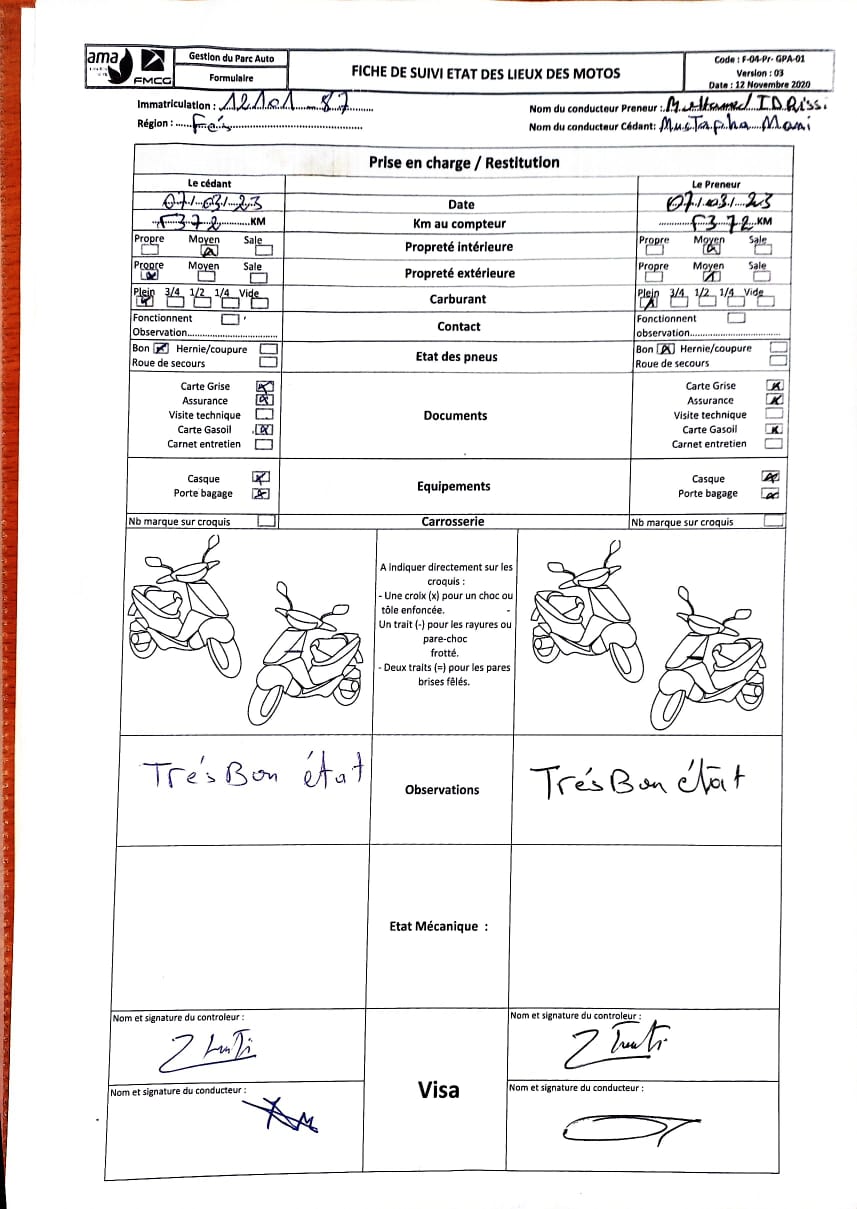 ama FMCG
Gestion du Parc Auto
Formulaire
FICHE DE SUIVI ETAT DES LIEUX DES MOTOS
Code : F-04-Pr- GPA-01
Version : 03
Date : 12 Novembre 2020
Immatriculation : 12101 - 87
Région : Fés
Nom du conducteur Preneur : IDRissi
Nom du conducteur Cédant: MusTapha Mani
Prise en charge / Restitution
Le cédant Le Preneur
07/03/23 Date 07/03/23
372 KM Km au compteur 372 KM
Propre Moyen Sale Propreté intérieure Propre Moyen Sale
Propre Moyen Sale Propreté extérieure Propre Moyen Sale
Plein 3/4 1/2 1/4 Vide Carburant Plein 3/4 1/2 1/4 Vide
Fonctionnent Contact Fonctionnent
Observation observation
Bon Hernie/coupure Etat des pneus Bon Hernie/coupure
Roue de secours Roue de secours
Carte Grise Carte Grise
Assurance Assurance
Visite technique Documents Visite technique
Carte Gasoil Carte Gasoil
Carnet entretien Carnet entretien
Casque Equipements Casque
Porte bagage Porte bagage
Nb marque sur croquis Carrosserie Nb marque sur croquis
A indiquer directement sur les
croquis :
- Une croix (x) pour un choc ou
tôle enfoncée. -
Un trait (-) pour les rayures ou
pare-choc
frotté.
- Deux traits (=) pour les pares
brises fêlés.
Trés Bon état Observations Trés Bon état
Etat Mécanique :
Nom et signature du controleur : Nom et signature du controleur :
Visa
Nom et signature du conducteur : Nom et signature du conducteur :